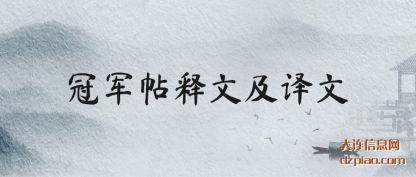 冠军帖释文及译文
大连信息网
dzpiao.com